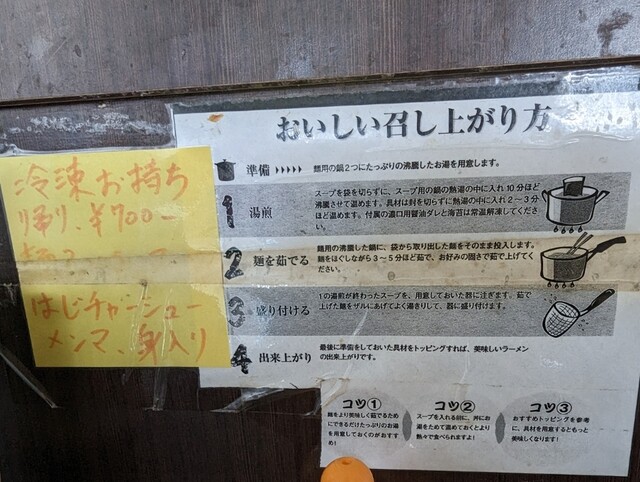 おいしい召し上がり方
準備 麺用の鍋2つにたっぷりの沸騰したお湯を用意します。
1 湯煎
スープを袋を切らずに、スープ用の鍋の熱湯の中に入れ10分ほど
沸騰させて温めます。具材は封を切らずに熱湯の中に入れ2〜3分
ほど温めます。付属の濃口用醤油ダレと海苔は常温解凍してくだ
さい。
2 麺を茹でる
麺用の沸騰した鍋に、袋から取り出した麺をそのまま投入します。
麺をほぐしながら3〜5分ほど茹で、お好みの固さで茹で上げてく
ださい。
3 盛り付ける
1の湯煎が終わったスープを、用意しておいた器に注ぎます。茹で
上げた麺をザルにあげてよく湯きりして、器に盛り付けます。
4 出来上がり
最後に準備をしておいた具材をトッピングすれば、美味しいラーメン
の出来上がりです。
コツ①
麺をより美味しく茹でるため
にできるだけたっぷりのお湯
を用意しておくのがおすす
め!
コツ②
スープを入れる前に、丼にお
湯をためて温めておくとより
熱々で食べられますよ!
コツ③
おすすめトッピングを参考
に、具材を用意するともっと
美味しくなります!
冷凍お持ち
帰り、¥700ー
はじチャーシュー
メンマ、
入り